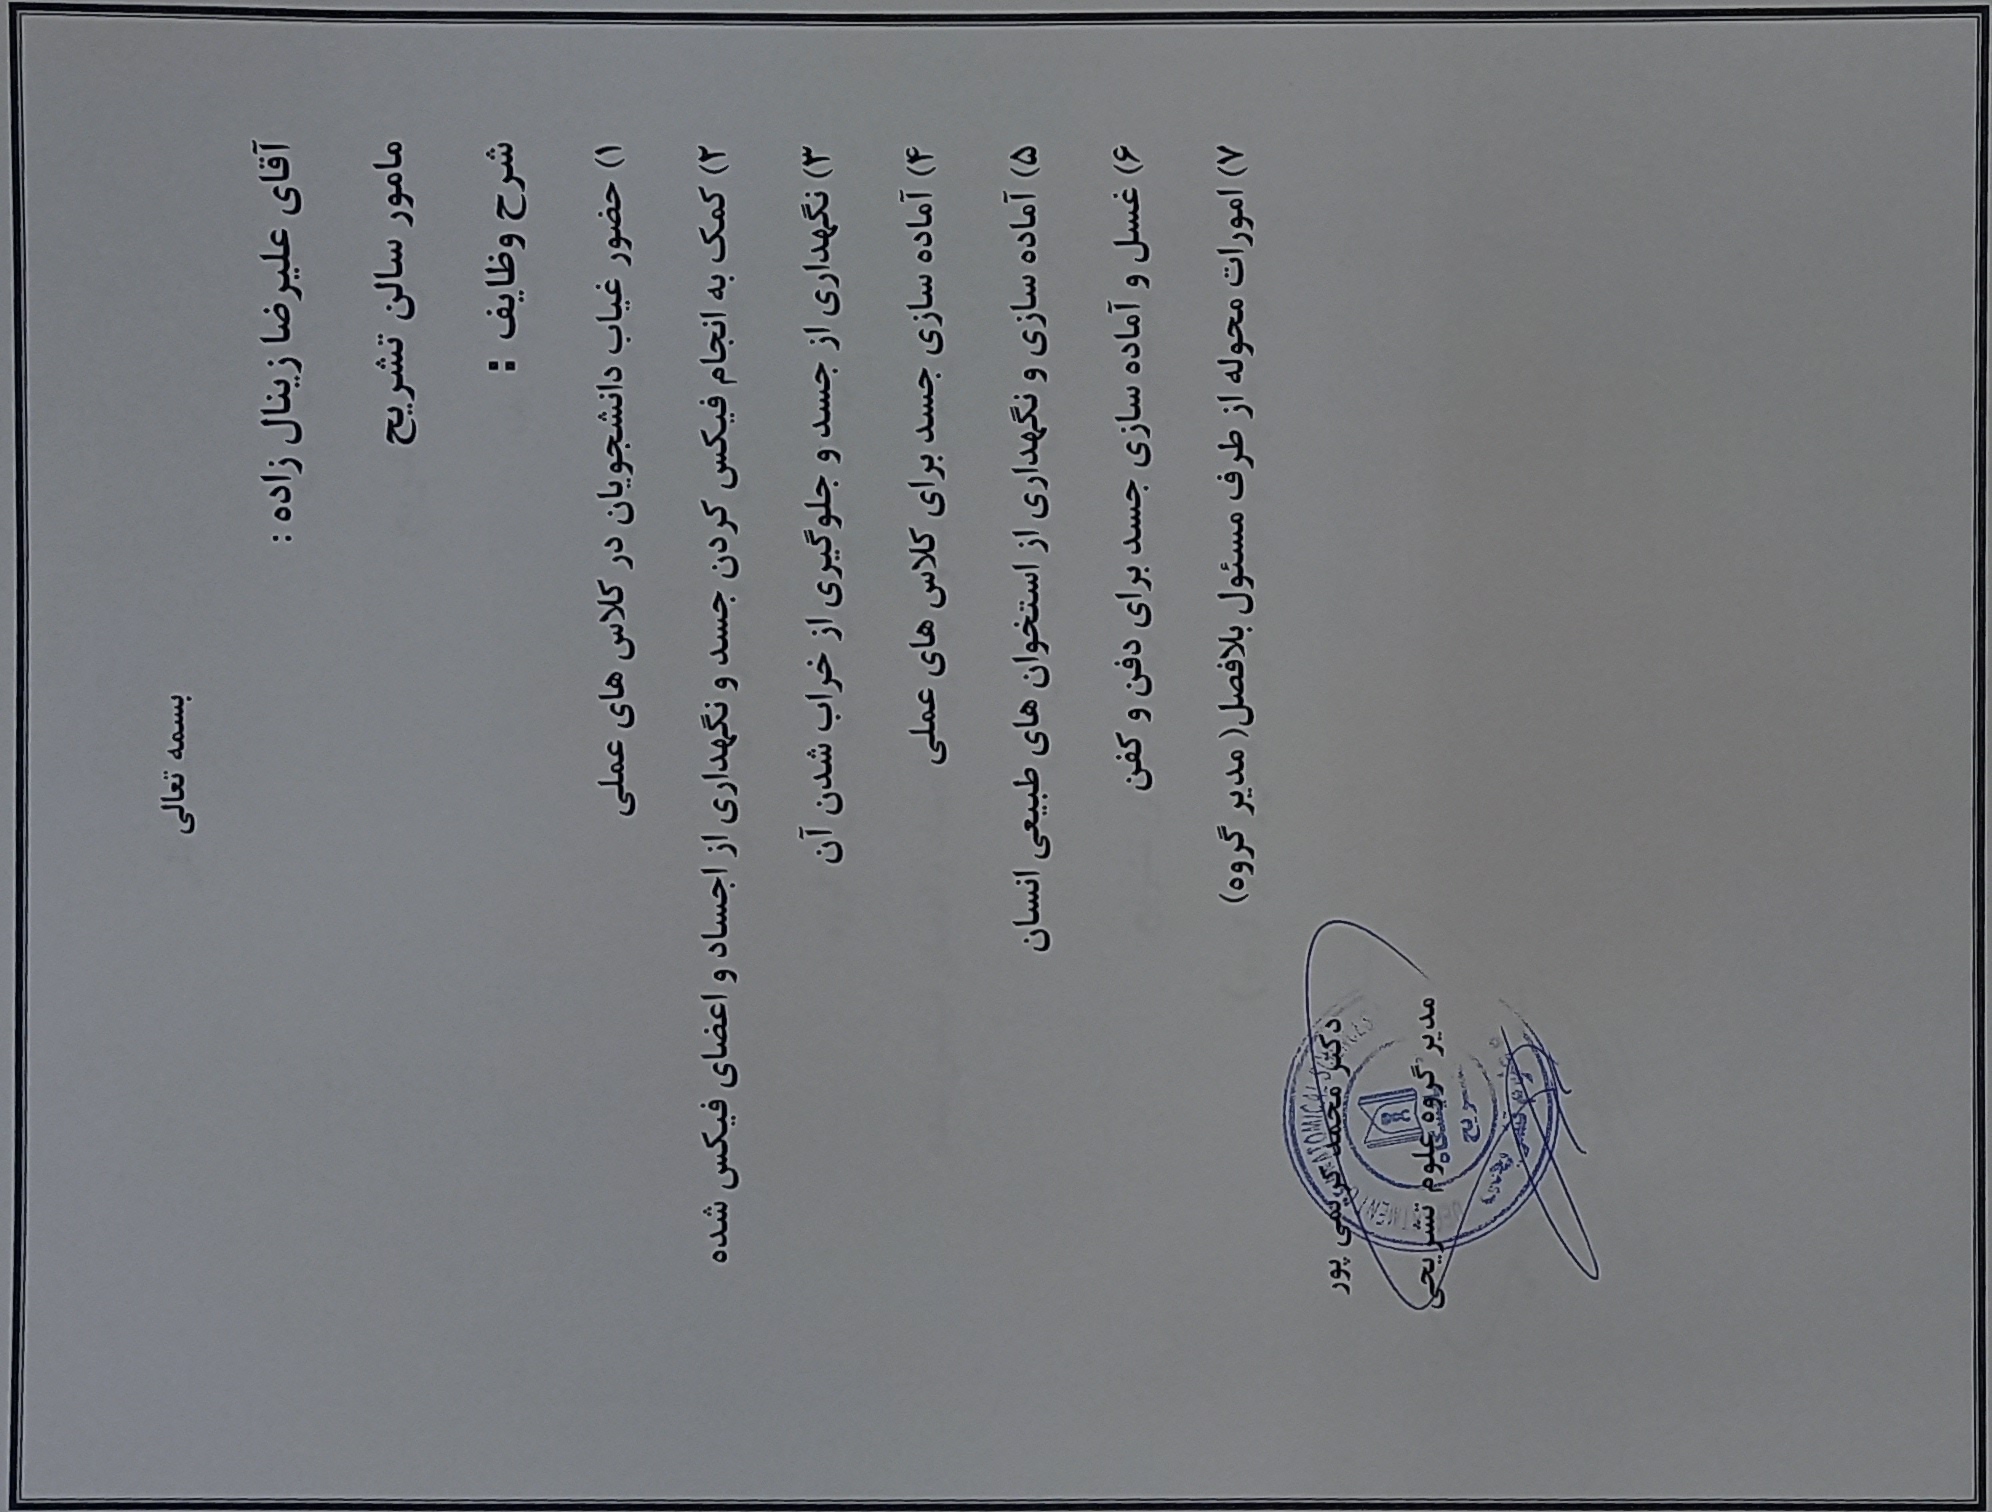 بسمه تعالی
آقای علیرضا زینال زاده :
مامور سالن تشریح
شرح وظایف :
۱) حضور غیاب دانشجویان در کلاس های عملی
۲) کمک به انجام فیکس کردن جسد و نگهداری از اجساد و اعضای فیکس شده
۳) نگهداری از جسد و جلوگیری از خراب شدن آن
۴) آماده سازی جسد برای کلاس های عملی
۵) آماده سازی و نگهداری از استخوان های طبیعی انسان
۶) غسل و آماده سازی جسد برای دفن و کفن
۷) امورات محوله از طرف مسئول بلافصل( مدیر گروه)
دکتر محمد کریمی پور
مدیر گروه علوم تشریحی